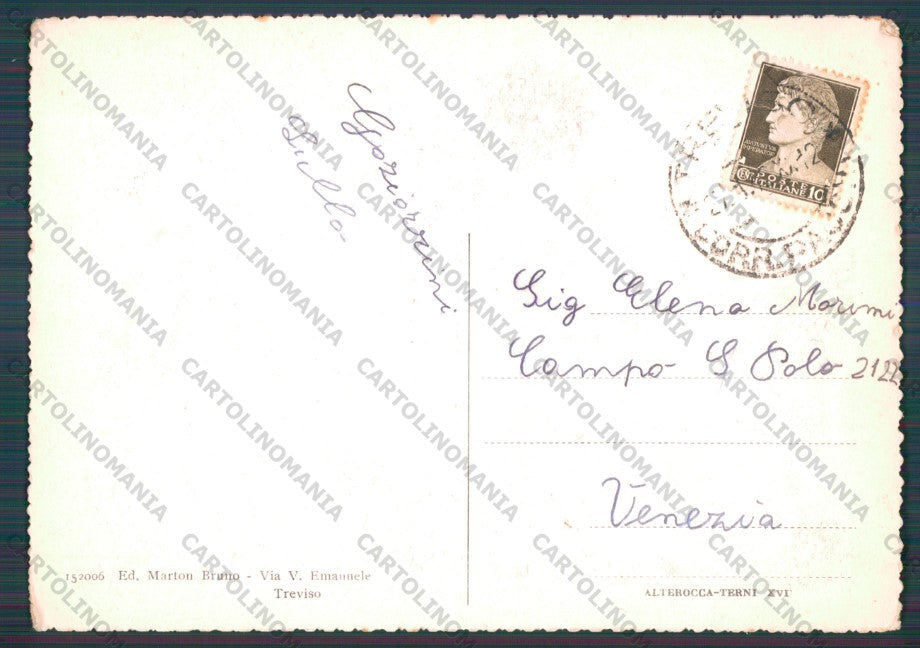 Lullo-
Sig Elena Marini
Campo S Polo 2122
Venezia
AVGVSTVS
IMPERATOR
POSTE
ITALIANE 10
152006 Ed. Marton Bruno - Via V. Emanuele
Treviso
ALTEROCCA-TERNI XVI
CARTOLINOMANIA